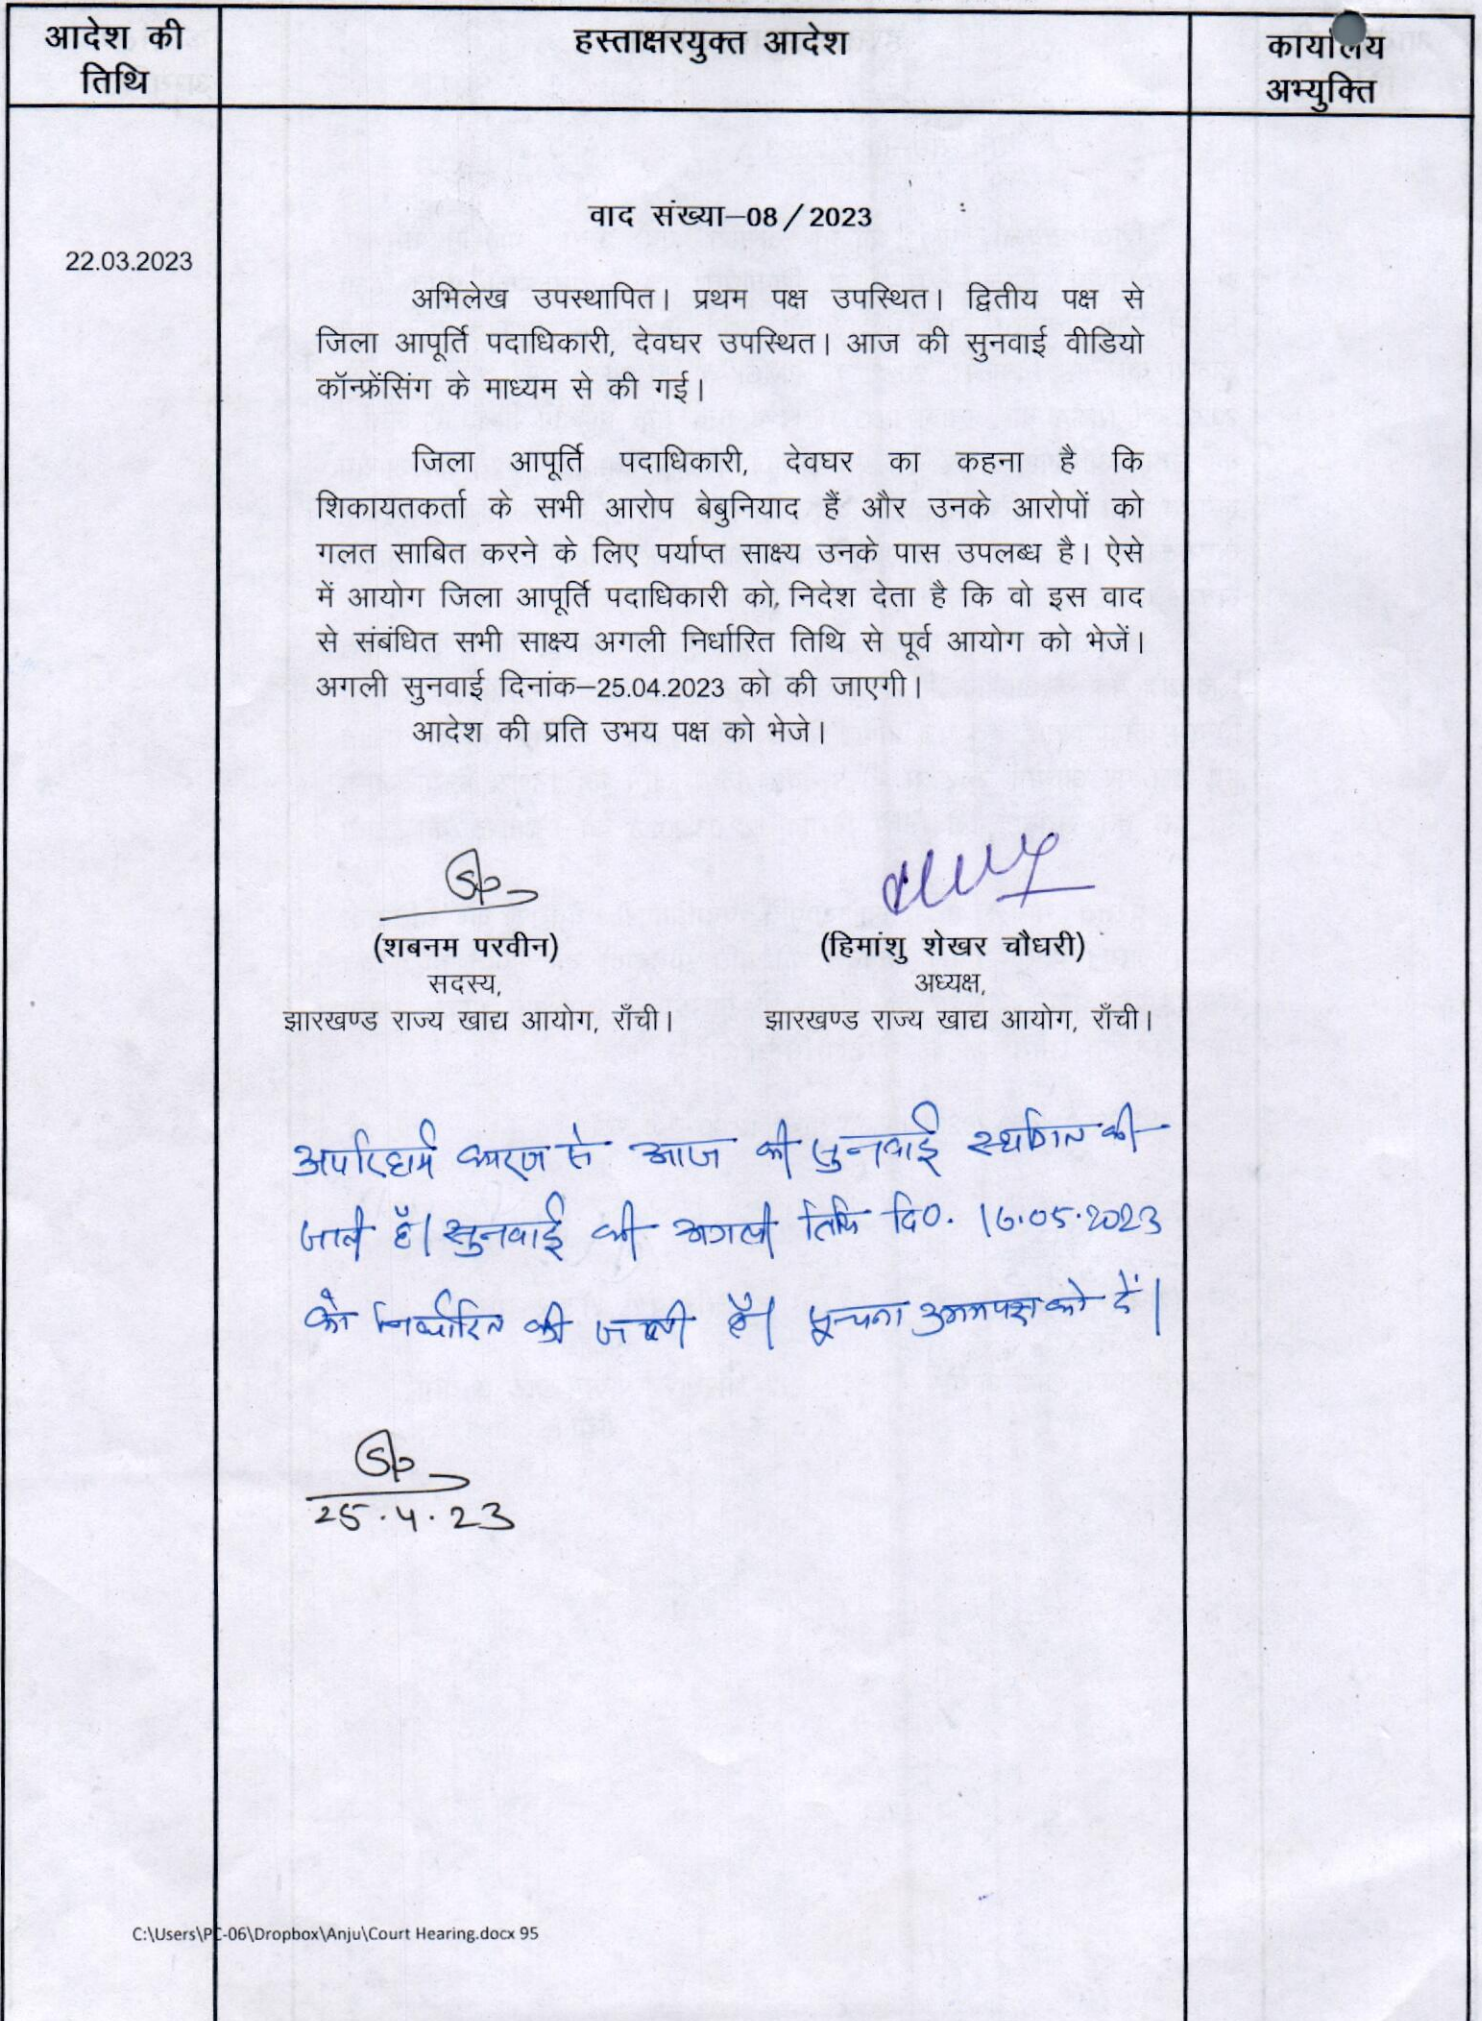 आदेश की
तिथि
हस्ताक्षरयुक्त आदेश
कार्यालय
अभ्युक्ति
वाद संख्या–08/2023
22.03.2023
अभिलेख उपस्थापित। प्रथम पक्ष उपस्थित। द्वितीय पक्ष से
जिला आपूर्ति पदाधिकारी, देवघर उपस्थित। आज की सुनवाई वीडियो
कॉन्फ्रेंसिंग के माध्यम से की गई।
जिला आपूर्ति पदाधिकारी, देवघर का कहना है कि
शिकायतकर्ता के सभी आरोप बेबुनियाद हैं और उनके आरोपों को
गलत साबित करने के लिए पर्याप्त साक्ष्य उनके पास उपलब्ध है। ऐसे
में आयोग जिला आपूर्ति पदाधिकारी को निदेश देता है कि वो इस वाद
से संबंधित सभी साक्ष्य अगली निर्धारित तिथि से पूर्व आयोग को भेजें।
अगली सुनवाई दिनांक–25.04.2023 को की जाएगी।
आदेश की प्रति उभय पक्ष को भेजे।
(शबनम परवीन)
सदस्य,
झारखण्ड राज्य खाद्य आयोग, राँची।
(हिमांशु शेखर चौधरी)
अध्यक्ष,
झारखण्ड राज्य खाद्य आयोग, राँची।
अपरिहार्य कारण से आज की सुनवाई स्थगित की
जाती है। सुनवाई की अगली तिथि दि०. 16.05.2023
को निर्धारित की जाती है। सूचना उभयपक्ष को दें।
25.4.23
C:\Users\PC-06\Dropbox\Anju\Court Hearing.docx 95